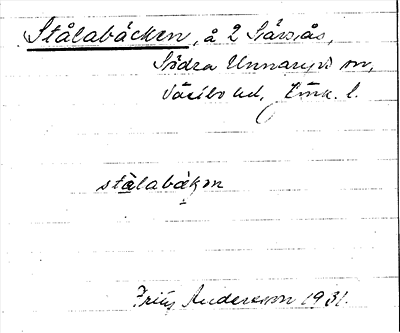 Stålabäcken, å 2
Södra Unnaryds sn,
Västbo hd, Jönk. l.
stålabäkən
Andersson 1931.